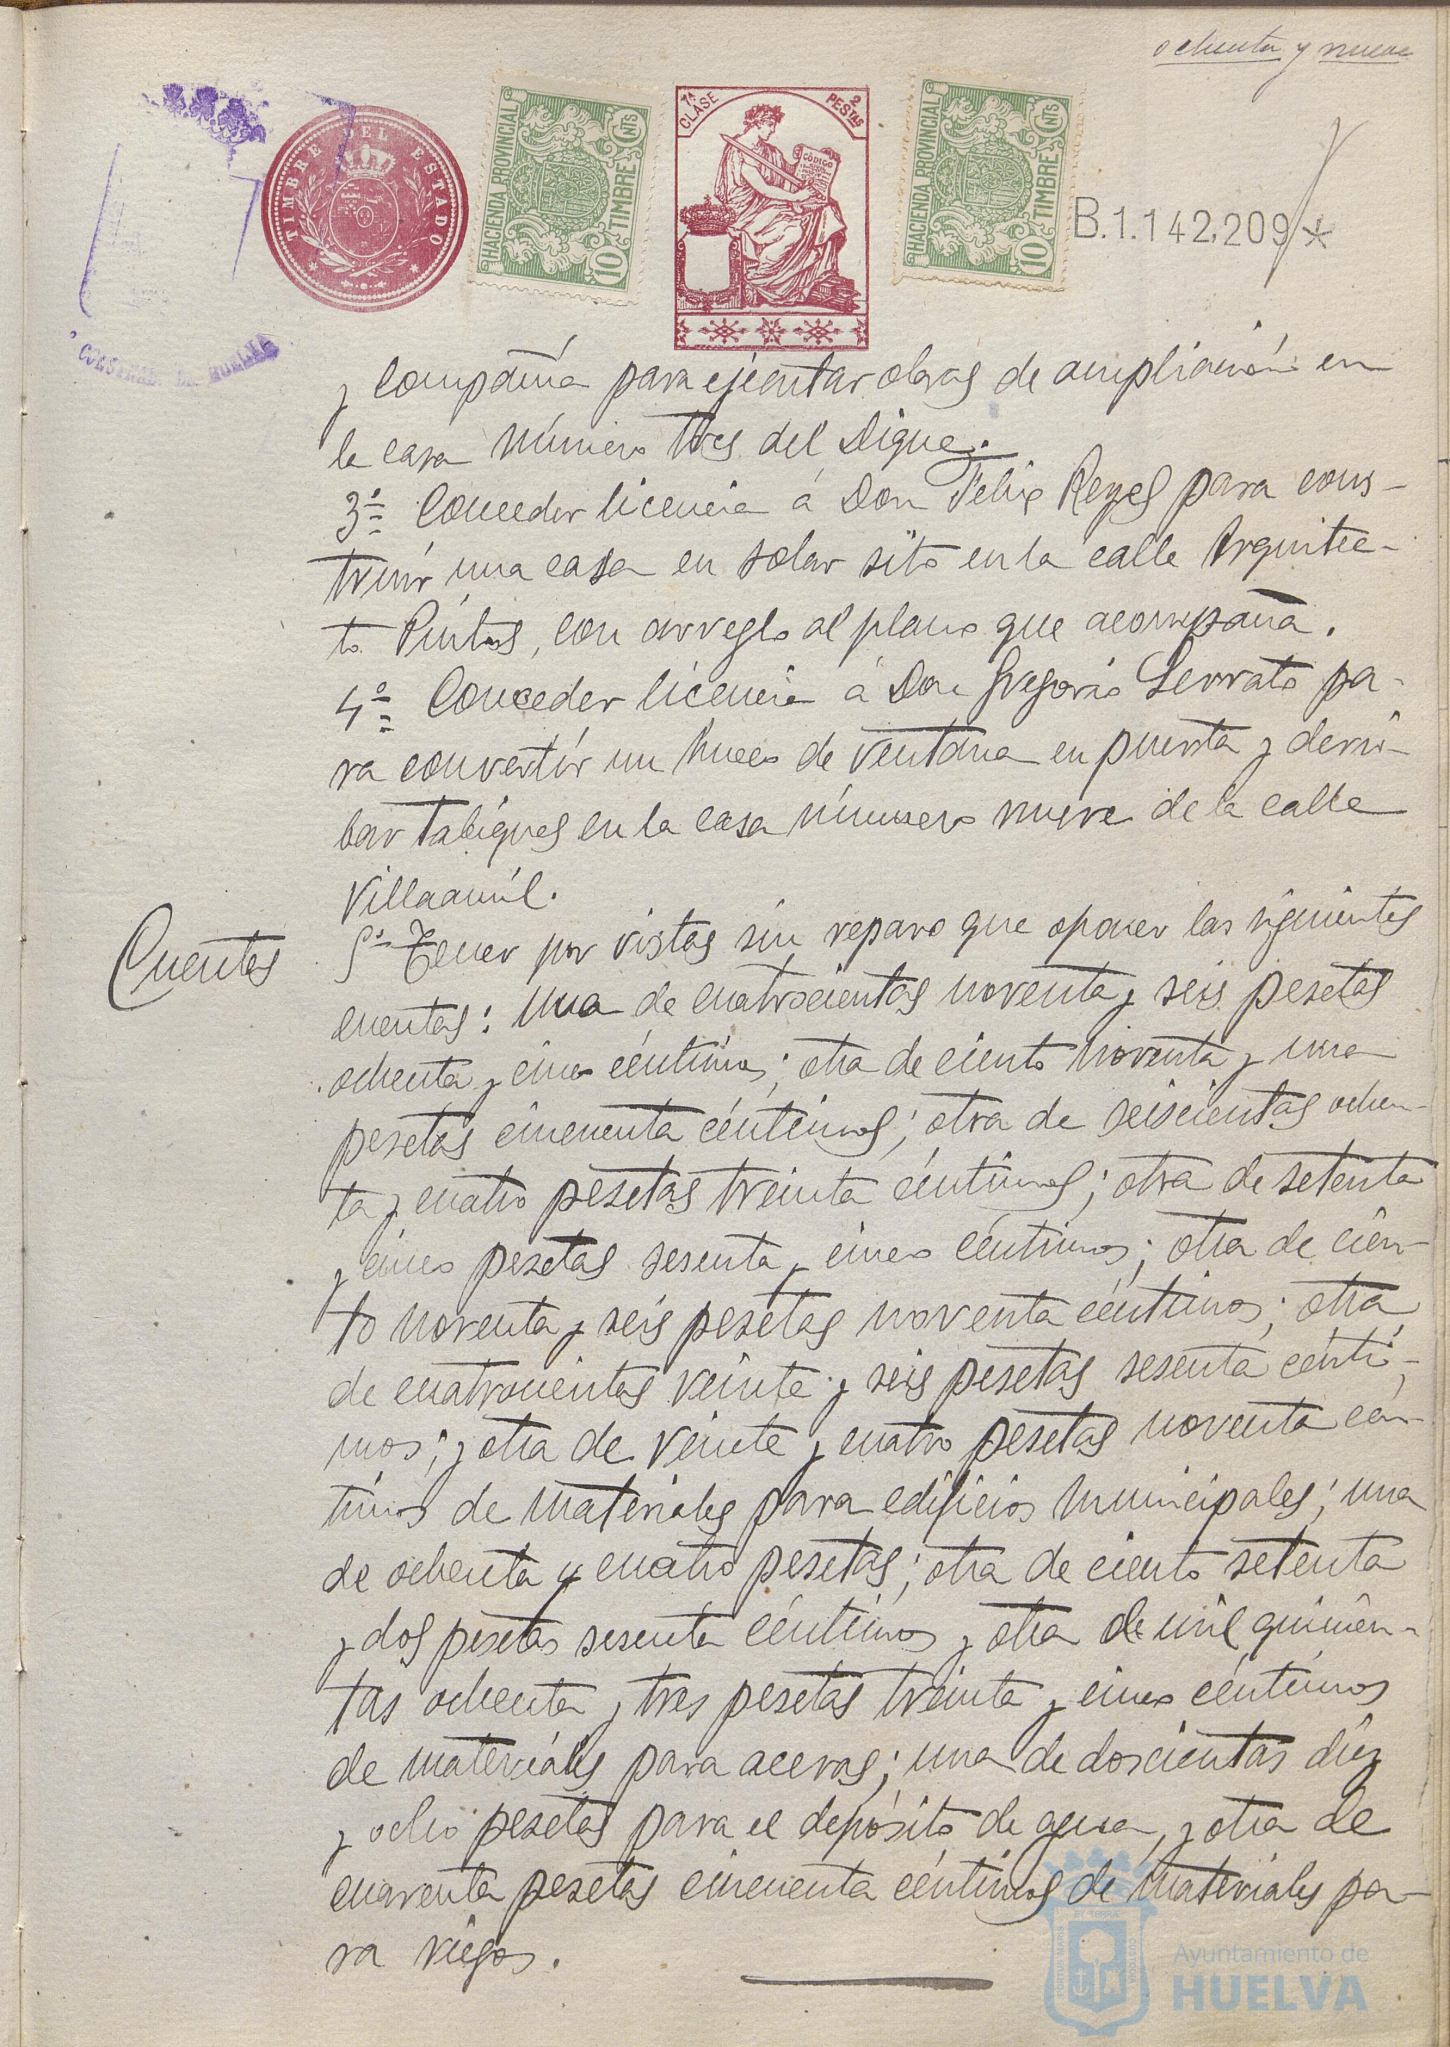 ochenta y nueve
TIMBRE DEL ESTADO
HACIENDA PROVINCIAL
10 CNTS
TIMBRE
1ª CLASE
2 PESTAS
CÓDIGO
HACIENDA PROVINCIAL
10 CNTS
TIMBRE
B.1.142,209*
HUELVA
y Compañía para ejecutar obras de ampliación en
la casa número tres del Dique.
3º Conceder licencia á Don Felix Reyes para cons-
truir una casa en solar sito en la calle Arquitec-
to Pintos, con arreglo al plano que acompaña.
4º Conceder licencia á Don Gregorio Serrato pa-
ra convertir un hueco de ventana en puerta y derri-
bar tabiques en la casa número nueve de la calle
Villaamil.
Cuentas
5º Tener por vistas sin reparo que oponer las siguientes
cuentas: una de cuatrocientas noventa y seis pesetas
ochenta y cinco céntimos; otra de ciento noventa y una
pesetas cincuenta céntimos; otra de seiscientas ochen-
ta y cuatro pesetas treinta céntimos; otra de setenta
y cinco pesetas sesenta y cinco céntimos; otra de cien-
to noventa y seis pesetas noventa céntimos; otra
de cuatrocientas veinte y seis pesetas sesenta cénti-
mos; y otra de veinte y cuatro pesetas noventa cén-
timos de materiales para edificios municipales; una
de ochenta y cuatro pesetas; otra de ciento setenta
y dos pesetas sesenta céntimos y otra de mil quinien-
tas ochenta y tres pesetas treinta y cinco céntimos
de materiales para aceras; una de doscientas diez
y ocho pesetas para el depósito de agua, y otra de
cuarenta pesetas cincuenta céntimos de materiales pa-
ra riegos.
Ayuntamiento de
HUELVA